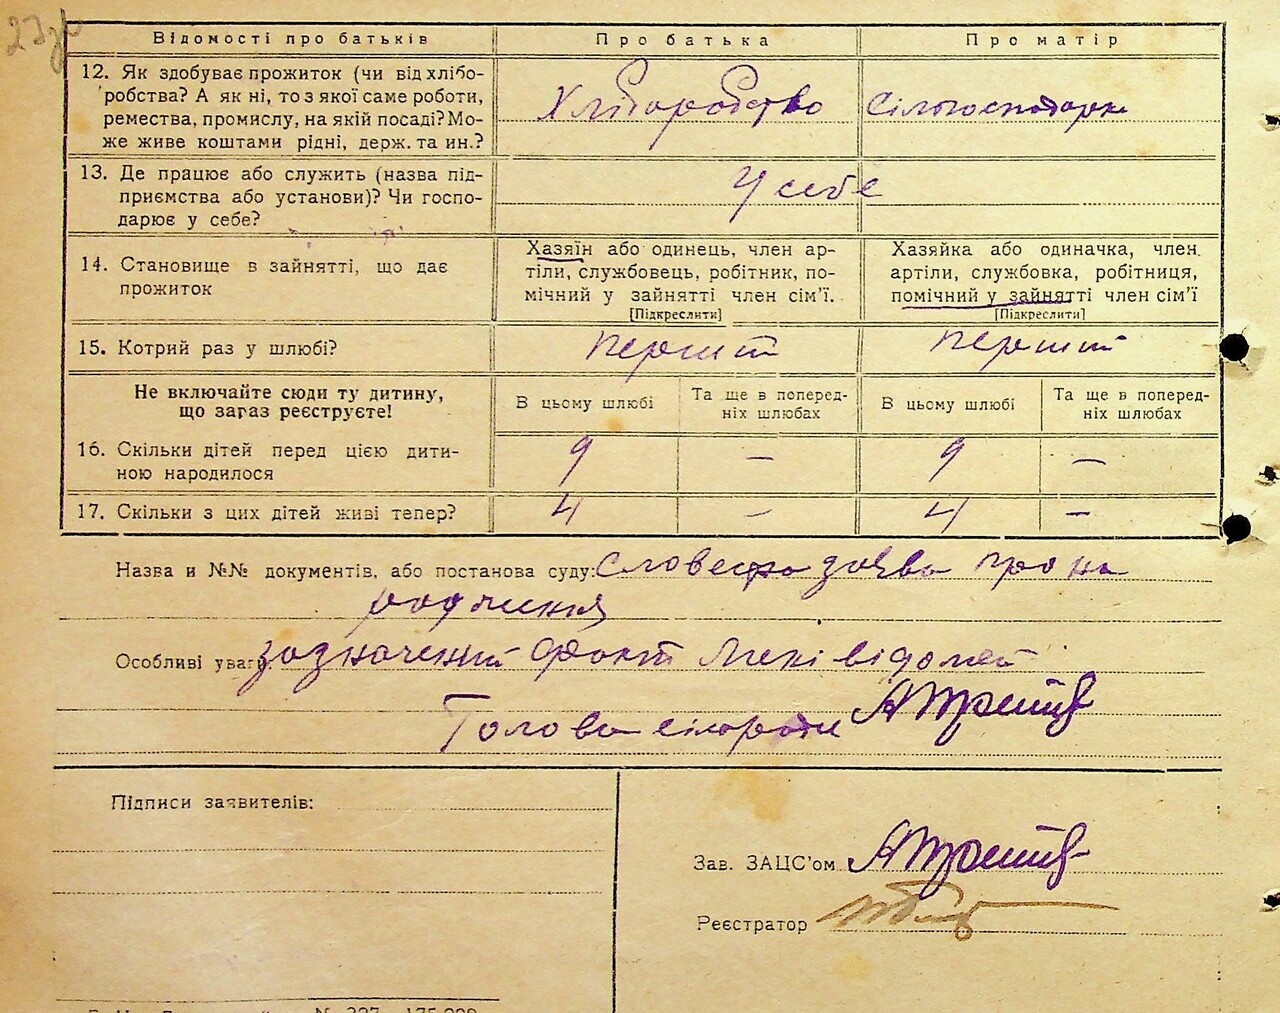 23зв
Відомості про батьків Про батька Про матір
12. Як здобуває прожиток (чи від хлібо- робства? А як ні, то з якої саме роботи, ремества, промислу, на якій посаді? Мо- же живе коштами рідні, держ. та ин.?
Хліборобство
13. Де працює або служить (назва під- приємства або установи)? Чи госпо- дарює у себе?
У себе
14. Становище в зайнятті, що дає прожиток
Хазяїн або одинець, член ар-
тіли, службовець, робітник, по-
мічний у зайнятті член сім'ї.
[Підкреслити]
Хазяйка або одиначка, член
артіли, службовка, робітниця,
помічний у зайнятті член сім'ї
[Підкреслити]
15. Котрий раз у шлюбі? перший перший
Не включайте сюди ту дитину,
що загаз реєструєте!
В цьому шлюбі
Та ще в поперед-
ніх шлюбах
В цьому шлюбі
Та ще в поперед-
ніх шлюбах
16. Скільки дітей перед цією дити-
ною народилося
9 — 9 —
17. Скільки з цих дітей живі тепер? 4 — 4 —
Назва и №№ документів, або постанова суду: Словесна заява про на
родження
Особливі уваги зазначений факт Мені відомий
Голова сільради
Підписи заявителів:
Зав. ЗАЦС'ом
Реєстратор
№ 327—175.000